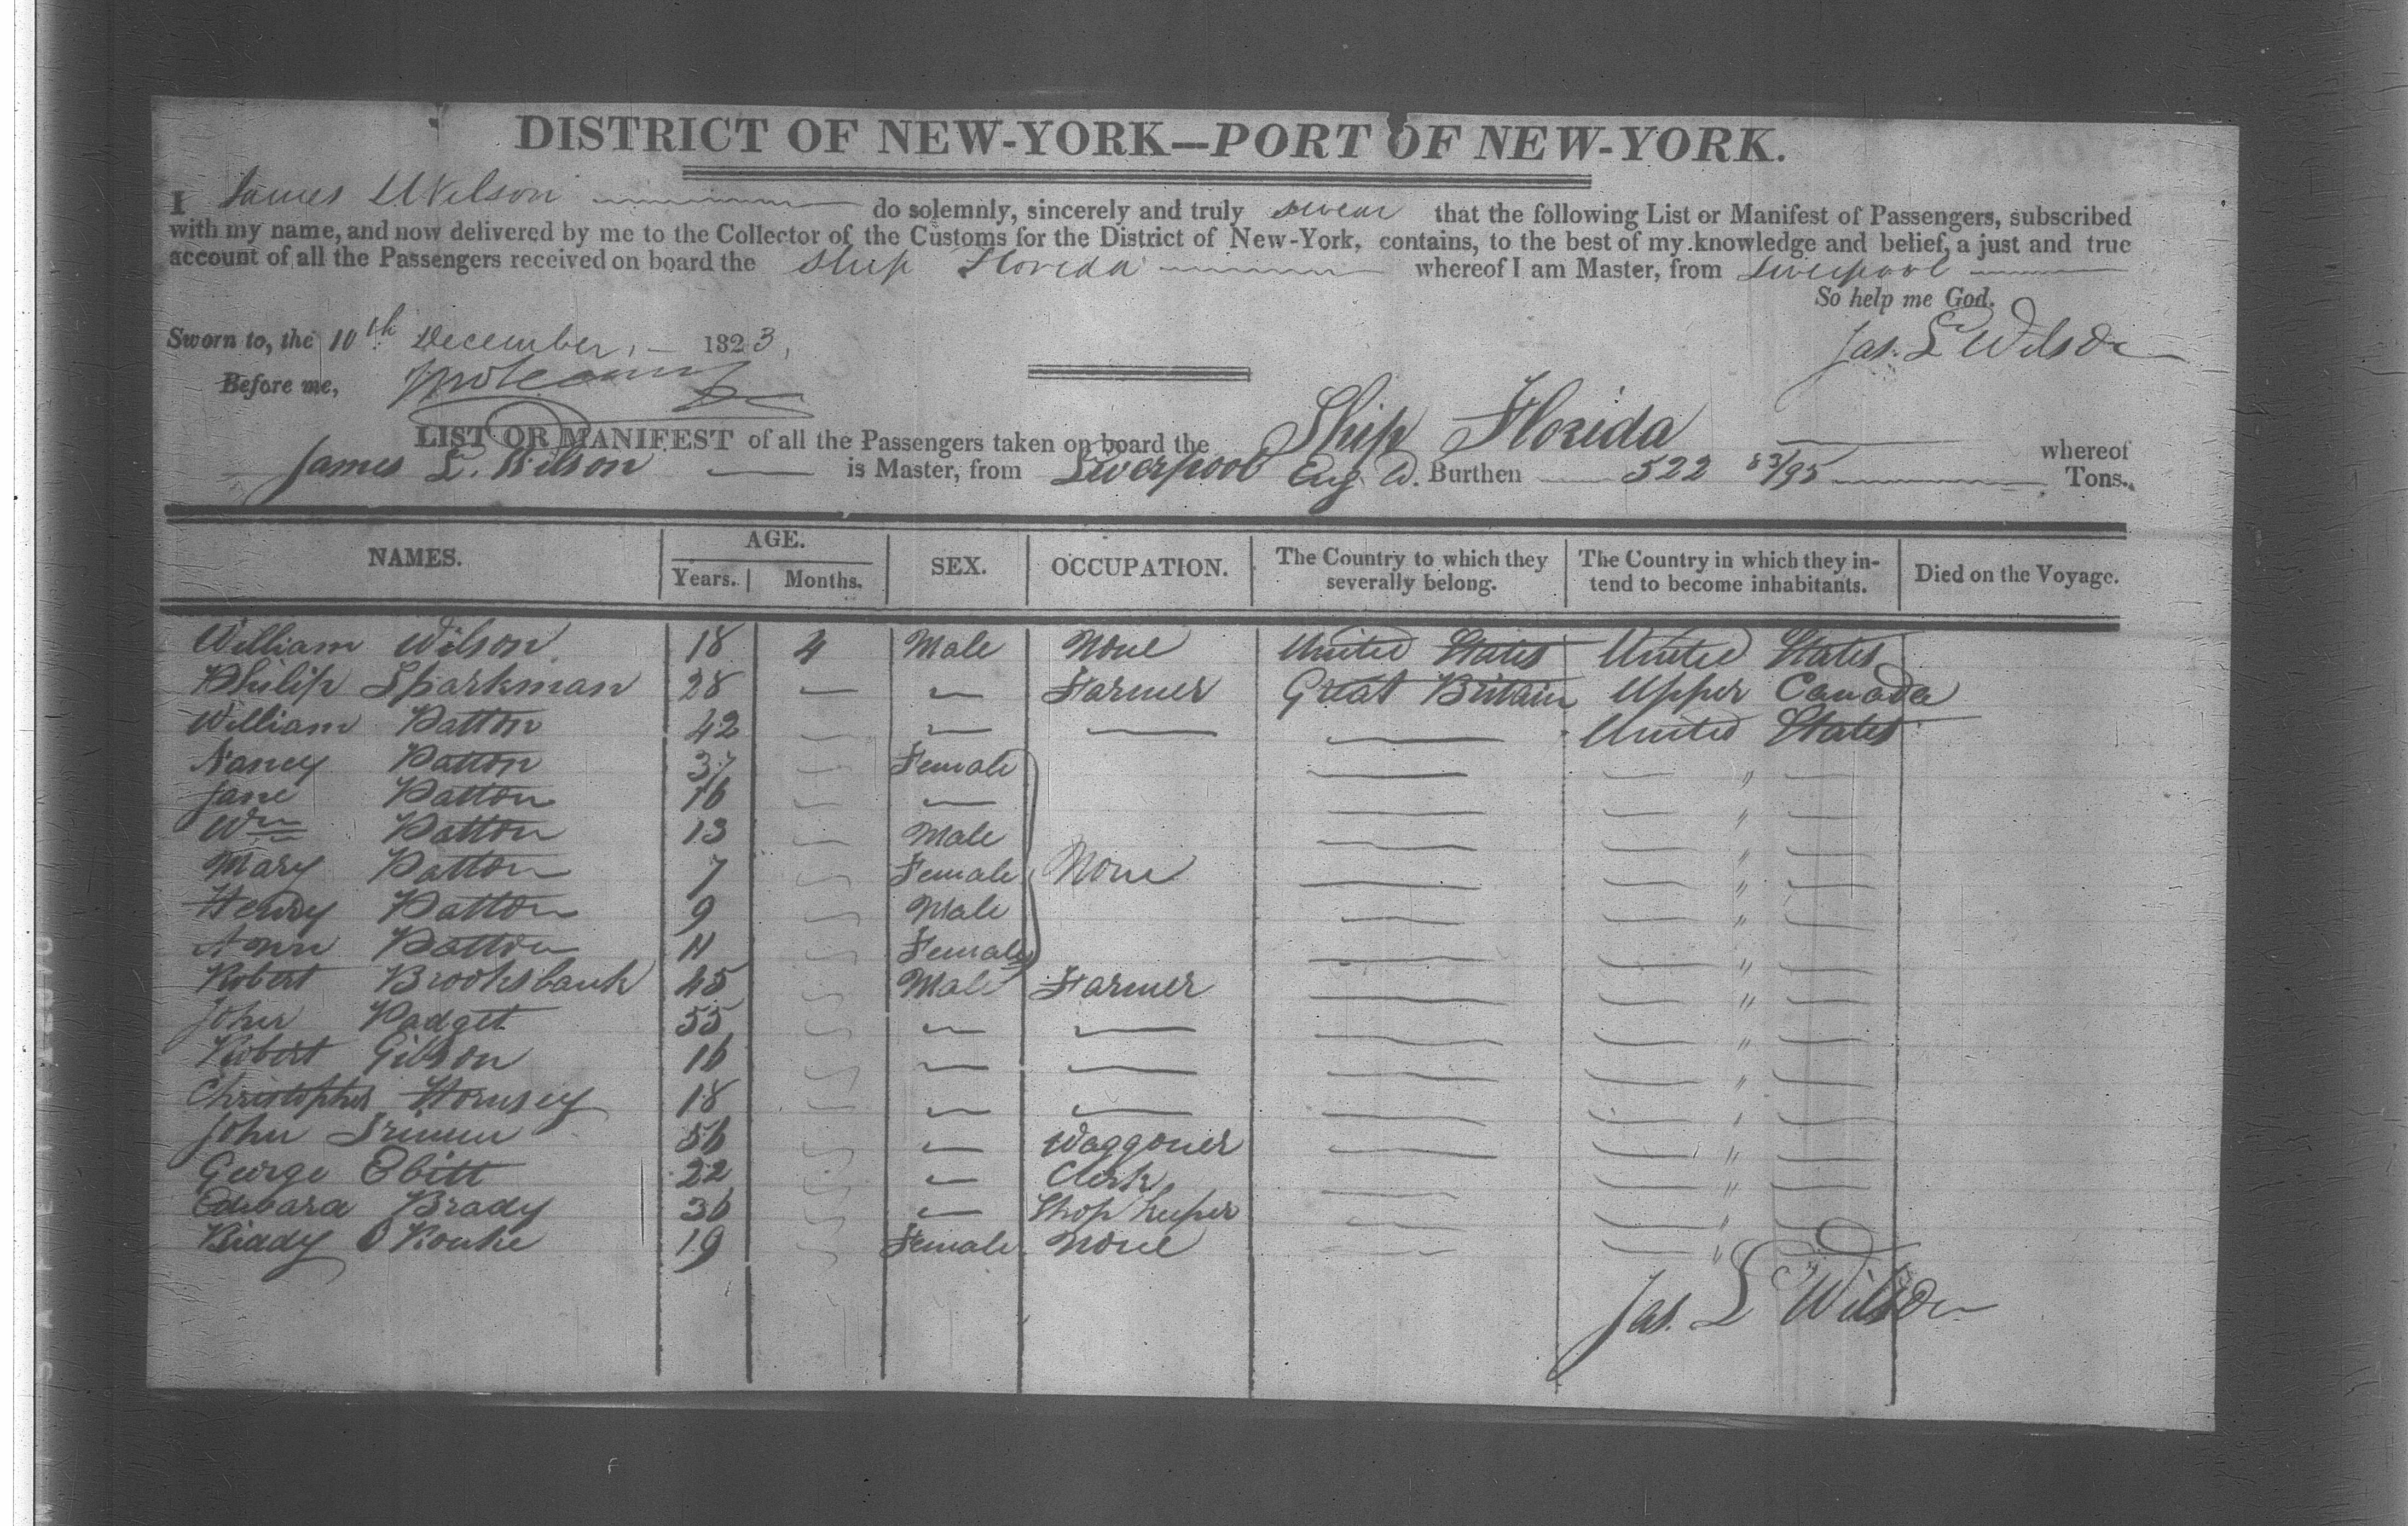 DISTRICT OF NEW-YORK—PORT OF NEW-YORK.
I James L Wilson do solemnly, sincerely and truly swear that the following List or Manifest of Passengers, subscribed
with my name, and now delivered by me to the Collector of the Customs for the District of New-York, contains, to the best of my knowledge and belief, a just and true
account of all the Passengers received on board the Ship Florida whereof I am Master, from Liverpool
So help me God.
Sworn to, the 10th December, 1823,
Jas. L Wilson
Before me,
LIST OR MANIFEST of all the Passengers taken on board the Ship Florida whereof
James L. Wilson is Master, from Liverpool Eng. d. Burthen 522 83/95 Tons.
NAMES. AGE. SEX. OCCUPATION. The Country to which they severally belong. The Country in which they intend to become inhabitants. Died on the Voyage.
Years. Months.
William Wilson 18 4 Male None United States United States
Philip Sparkman 28 — — Farmer Great Britain Upper Canada
William Patton 42 — — — — United States
Nancy Patton 37 — Female — — " —
Jane Patton 16 — — — — " —
Wm Patton 13 — Male — — " —
Mary Patton 7 Female None — — " —
Henry Patton 9 Male — — " —
Ann Patton 11 Female — — " —
Robert Brooksbank 45 Male Farmer — — " —
John Padget 55 — — — — " —
Robert Gibson 16 — — — — " —
Christopher Hornsey 18 — — — — " —
John 56 — Waggoner — — " —
George Ebitt 22 — Clerk — — " —
Edward Brady 36 — Shop keeper — — " —
Biddy O Rourke 19 Female None — — " —
Jas. L Wilson